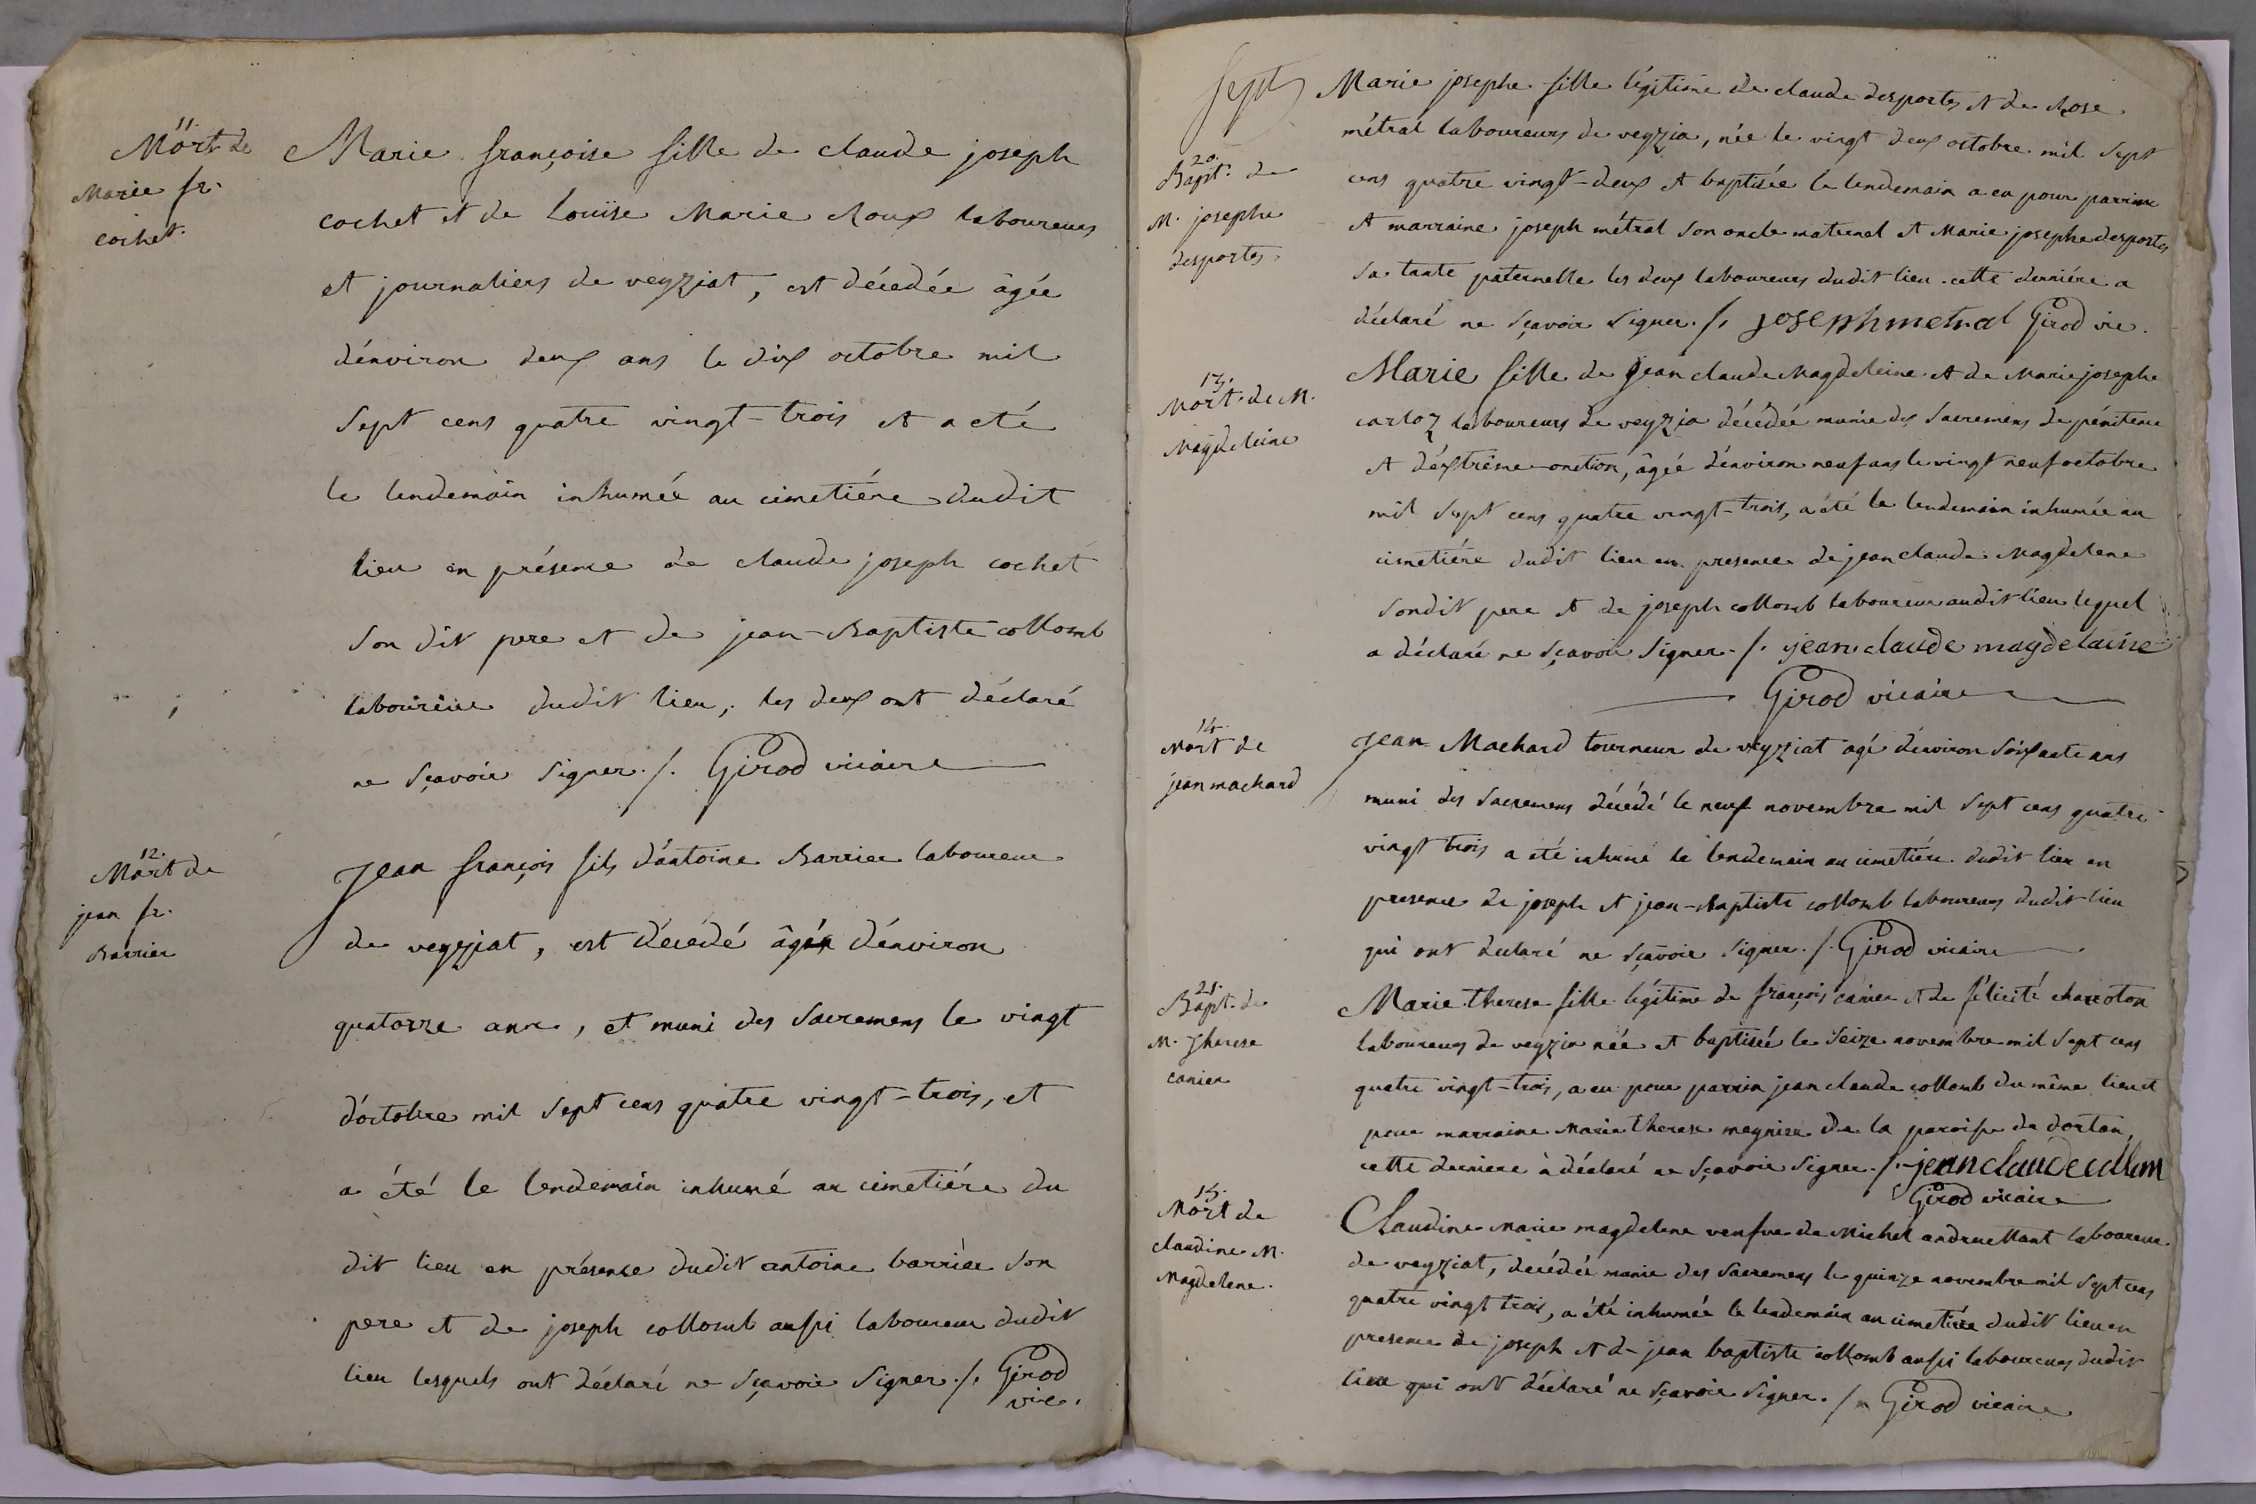 11.
Mort de
Marie fr.
cochet.
Marie françoise fille de claude joseph
cochet et de Louise Marie Roux laboureurs
et journaliers de veyziat, est décedée âgée
d'énviron deux ans le dix octobre mil
sept cens quatre vingt-trois et a eté
le lendemain inhumée au cimetiére dudit
lieu en présence de claude joseph cochet
son dit pere et de jean-Baptiste collomb
laboureur dudit lieu, les deux ont déclaré
ne sçavoir signer ./. Girod vicaire
12.
Mort de
jean fr.
Barrier
Jean françois fils d'antoine Barrier laboureur
de veyziat, est décedé âgé d'énviron
quatorze ans, et muni des sacremens le vingt
d'octobre mil sept cens quatre vingt-trois, et
a été le lendemain inhumé au cimetiére du
dit lieu en présence dudit antoine barrier son
pere et de joseph collomb aussi laboureur dudit
lieu lesquels ont déclaré ne sçavoir signer ./. Girod
vice.
sept
20.
Bapt. de
M. josephe
desportes.
Marie josephe fille légitime de claude desportes et de Rose
métral laboureurs de veyzia, née le vingt deux octobre mil sept
cens quatre vingt-deux et baptisée le lendemain a eu pour parrain
et marraine joseph métral son oncle maternel et Marie josephe desportes
sa tante paternelle les deux laboureurs dudit lieu cette derniére a
déclaré ne sçavoir signer ./. joseph metral Girod vic.
13.
Mort de M.
Magdeleine
Marie fille de Jean claude Magdeleine et de Marie josephe
carloz laboureurs de veyzia décédée munie des sacremens de pénitence
et d'éxtrême-onction, âgée d'énviron neuf ans le vingt neuf octobre
mil sept cens quatre vingt-trois, a été le lendemain inhumée au
cimetiére dudit lieu en presence de jean claude Magdelene
sondit pere et de joseph collomb laboureur audit lieu lequel
a déclaré ne sçavoir signer ./. jean claude magdelaine
Girod vicaire
14.
Mort de
jean machard
Jean Machard tourneur de veyziat agé d'énviron soixante ans
muni des sacremens décédé le neuf novembre mil sept cens quatre
vingt trois a été inhumé le lendemain au cimetiére dudit lieu en
presence de joseph et jean-Baptiste collomb laboureurs dudit lieu
qui ont declaré ne sçavoir signer ./. Girod vicaire
21.
Bapt. de
M. Therese
canier
Marie therese fille légitime de françois canier et de félicité charroton
laboureurs de veyzia née et baptisée le seize novembre mil sept cens
quatre vingt-trois, a eu pour parrin jean claude collomb du même lieu et
pour marraine Marie therese meynier de la paroisse de dortan,
cette derniere à déclaré ne sçavoir signer ./. jean claude collom
Girod vicaire
15.
Mort de
claudine M.
Magdelene.
Claudine Marie magdelene veufve de Michel andruettant laboureur
de veyziat, decédée munie des sacremens le quinze novembre mil sept cens
quatre vingt trois, a été inhumée le lendemain au cimetière dudit lieu en
presence de joseph et de jean baptiste collomb aussi laboureurs dudit
lieu qui ont déclaré ne sçavoir signer ./. Girod vicaire